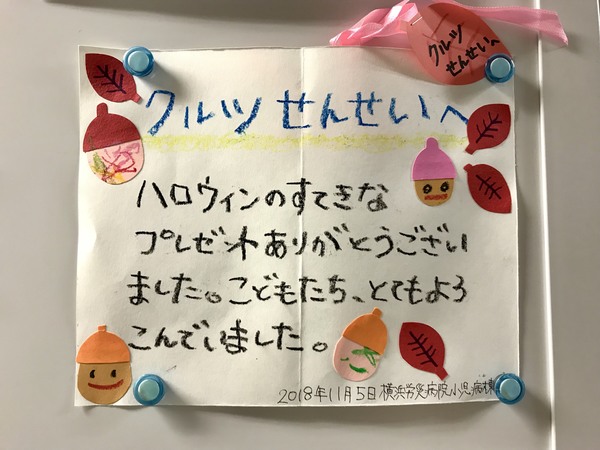 クルツ
せんせいへ
クルツ せんせいへ
ハロウィンのすてきな
プレゼントありがとうござい
ました。こどもたち、とてもよろ
こんでいました。
2018年11月5日 横浜労災病院小児病棟